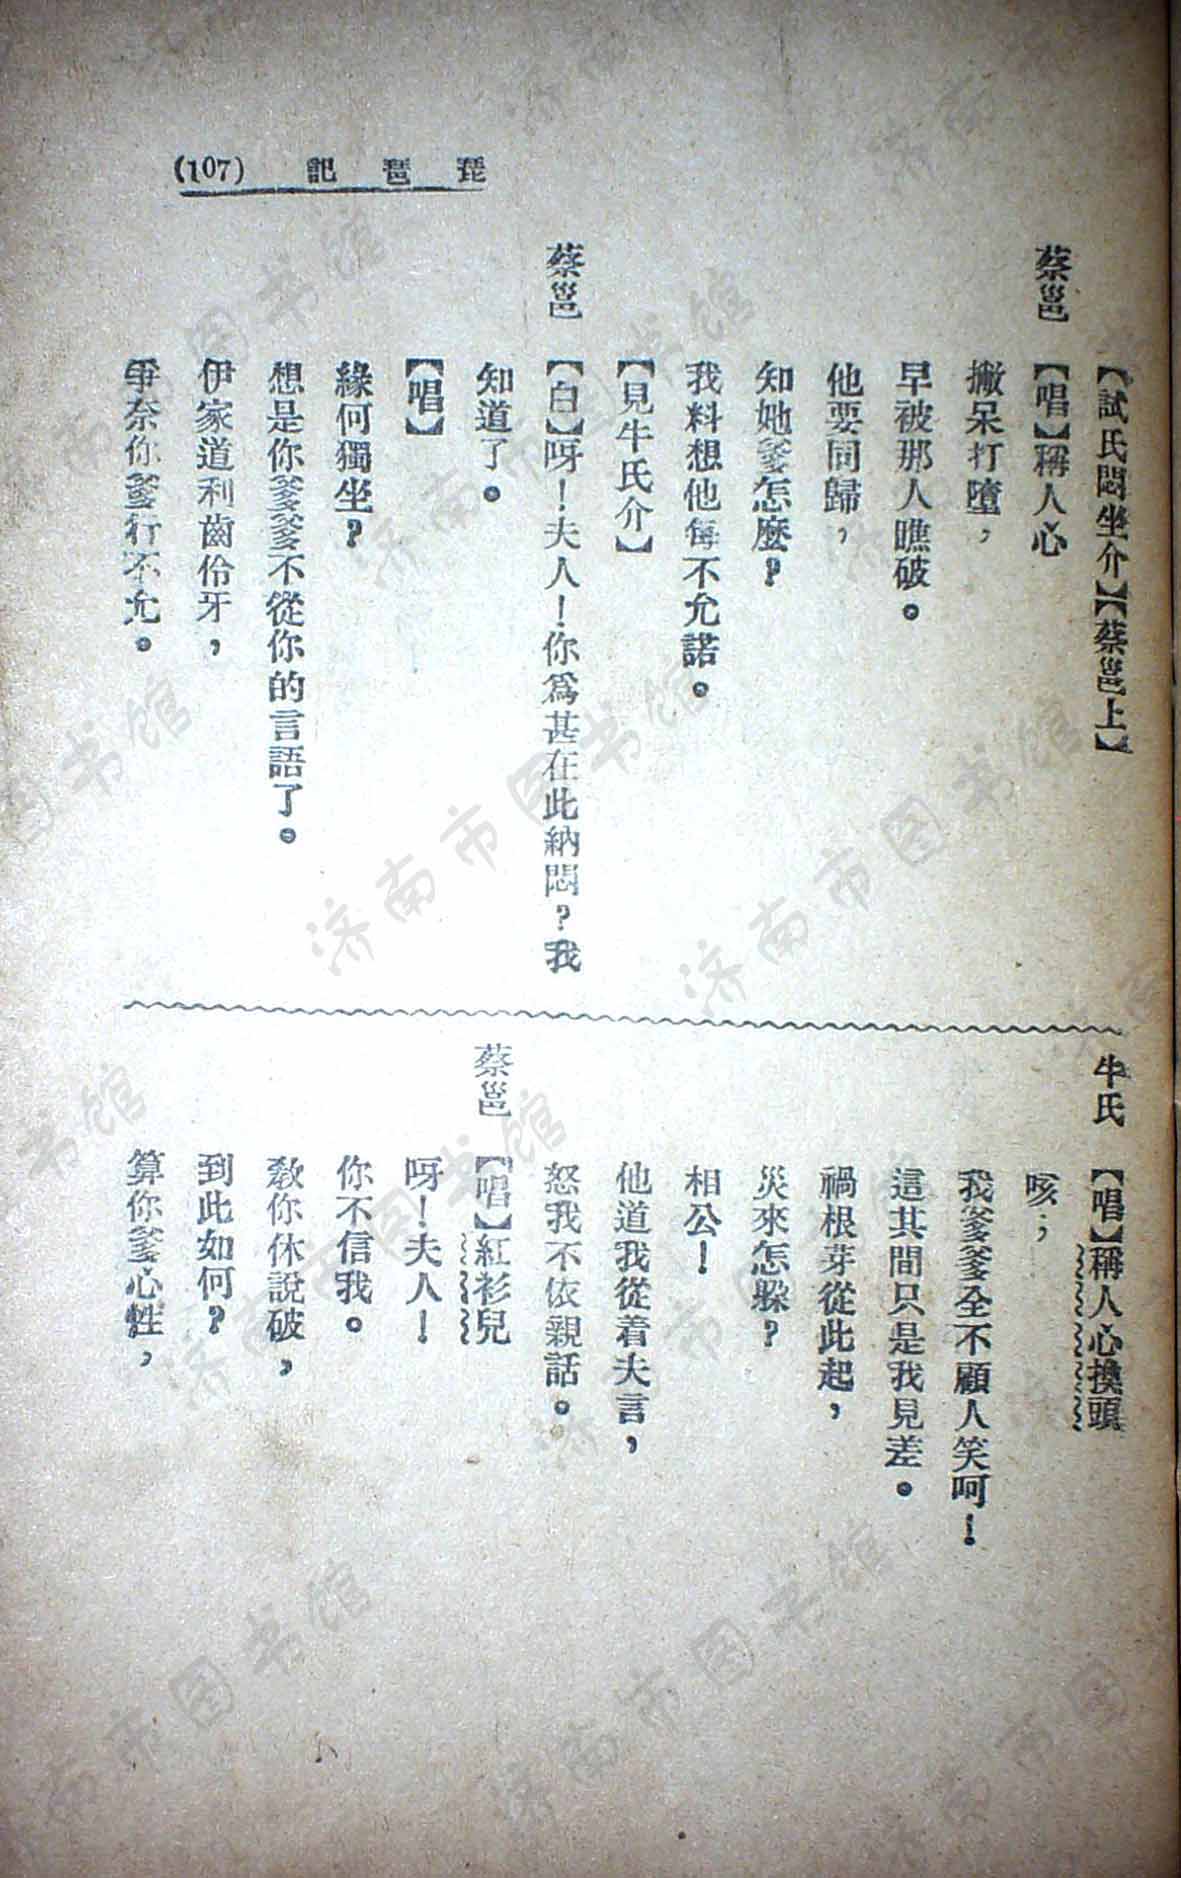 琵琶記 (107)
【試氏悶坐介】【蔡邕上】
蔡邕 【唱】稱人心
搬呆打墮，
早被那人瞧破。
他要同歸，
知她爹怎麼？
我料想他每不允諾。
【見牛氏介】
蔡邕 【白】呀！夫人！你為甚在此納悶？我
知道了。
【唱】
緣何獨坐？
想是你爹爹不從你的言語了。
伊家道利齒伶牙，
爭奈你爹行不允。
牛氏 【唱】稱人心換頭
咳；
我爹爹全不顧人笑呵！
這其間只是我見差。
禍根芽從此起，
災來怎躲？
相公！
他道我從着夫言，
怒我不依親話。
蔡邕 【唱】紅衫兒
呀！夫人！
你不信我。
教你休說破，
到此如何？
算你爹心性，
济南市图书馆